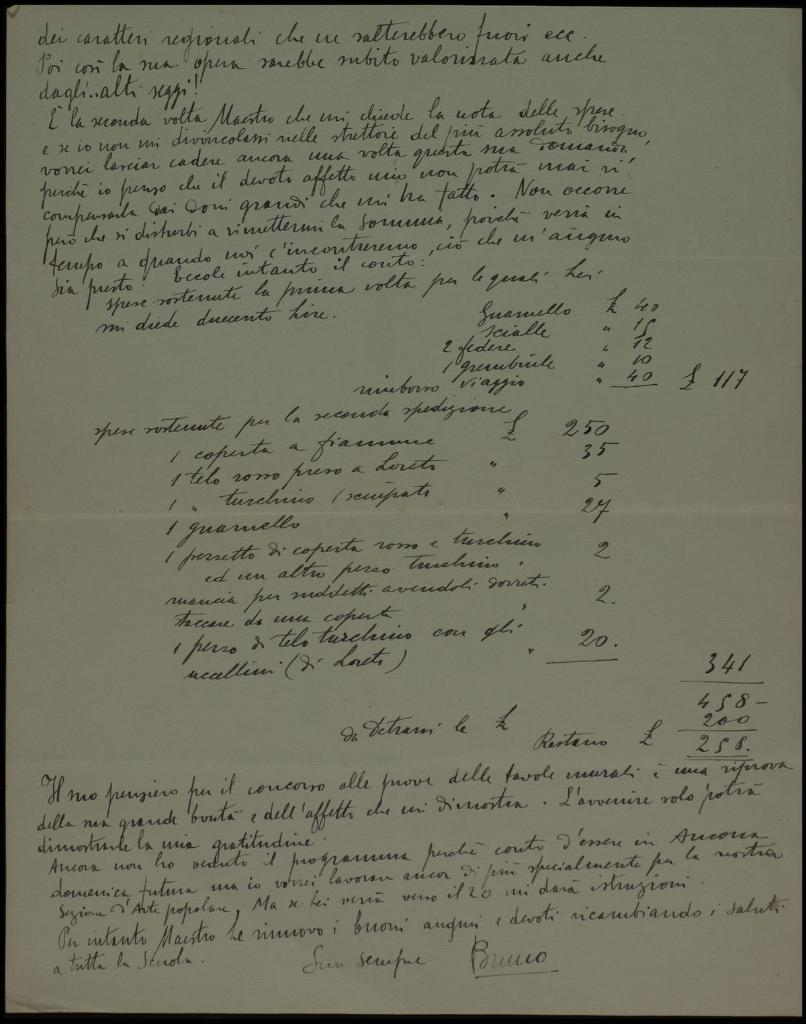 dei caratteri regionali che ne salterebbero fuori ecc.
Poi così la sua opera sarebbe subito valorizzata anche
dagli..alti seggi!
È la seconda volta Maestro che mi chiede la nota delle spese
e se io non mi divincolassi nelle strettoie del più assoluto bisogno,
vorrei lasciar cadere ancora una volta questa sua domanda,
perché io penso che il devoto affetto mio non potrà mai ri-
compensarla dai doni grandi che mi ha fatto. Non occorre
però che si disturbi a rimettermi la somma, poiché verrà in
tempo a quando noi c'incontreremo, ciò che m'auguro
sia presto. Eccole intanto il conto:
spese sostenute la prima volta per le quali Lei
mi diede duecento lire.
Guarnello £ 40
scialle " 15
2 federe " 12
1 grembiule " 10
rimborso viaggio " 40 £ 117
spese sostenute per la seconda spedizione
1 coperta a fiamme £ 250
1 telo rosso preso a Loreto " 35
1 " turchino (sciupato " 5
1 guarnello " 27
1 pezzetto di coperta rosso e turchino
ed un altro pezzo turchino " 2
mancia per suddetti avendoli dovuti
staccare da una coperta " 2.
1 pezzo di telo turchino con gli
uccellini (di Loreto) " 20.
341
458 -
da detrarsi le £ 200
Restano £ 258.
Il suo pensiero per il concorso alle prove delle tavole murali è una riprova
della sua grande bontà e dell'affetto che mi dimostra. L'avvenire solo potrà
dimostrarle la mia gratitudine.
Ancora non ho veduto il programma perché conto d'essere in Ancona
domenica futura ma io vorrei lavorare ancor di più specialmente per la nostra
Sezione d'Arte popolare. Ma se Lei verrà verso il 20 mi darà istruzioni.
Per intanto Maestro Le rinnovo i buoni auguri e devoti ricambiando i saluti
a tutta la Scuola.
Suo sempre Bruno